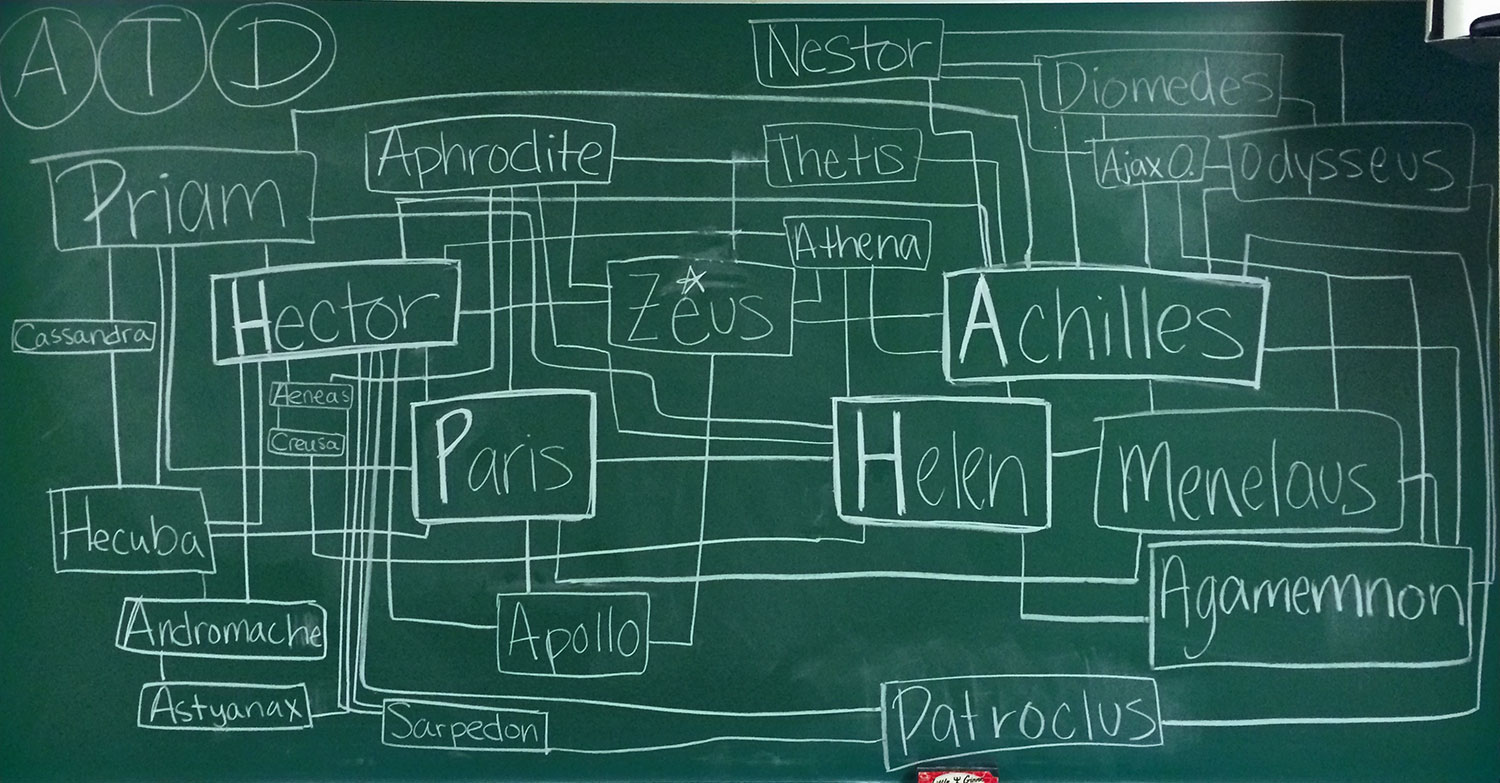 A T D
Nestor
Diomedes
Aphrodite
Thetis
Ajax O.
Odysseus
Priam
Athena
Hector
Zeus
Achilles
Cassandra
Aeneas
Creusa
Paris
Helen
Menelaus
Hecuba
Agamemnon
Andromache
Apollo
Astyanax
Sarpedon
Patroclus